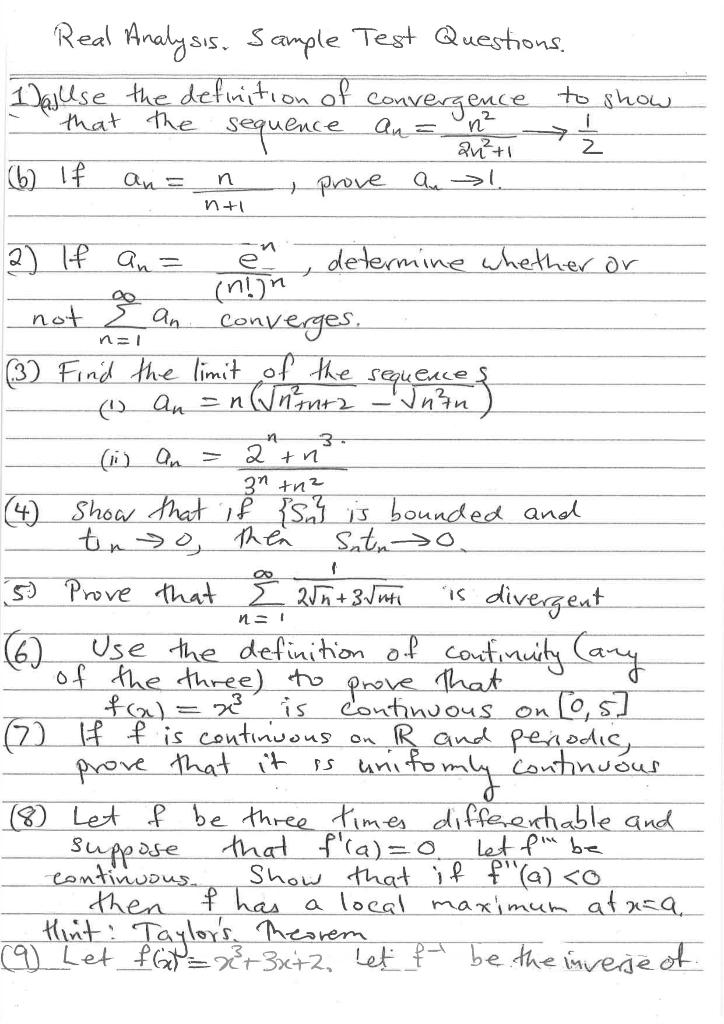 Real Analysis. Sample Test Questions.
1)(a) Use the definition of convergence to show
that the sequence aₙ = n²/(2n²+1) → 1/2
(b) If aₙ = n/(n+1), prove aₙ → 1.
2) If aₙ = eⁿ/(n!)ⁿ, determine whether or
not ∑_{n=1}^{∞} aₙ converges.
(3) Find the limit of the sequences
(i) aₙ = n(√(n²+n+2) - √(n²+n))
(ii) aₙ = (2ⁿ + n³)/(3ⁿ + n²)
(4) Show that if {Sₙ} is bounded and
tₙ → 0, then Sₙtₙ → 0.
5) Prove that ∑_{n=1}^{∞} 1/(2√n + 3√(n+1)) is divergent
(6) Use the definition of continuity (any
of the three) to prove that
f(x) = x³ is continuous on [0,5]
(7) If f is continuous on ℝ and periodic,
prove that it is uniformly continuous
(8) Let f be three times differentiable and
suppose that f'(a) = 0 Let f''' be
continuous. Show that if f''(a) < 0
then f has a local maximum at x=a.
Hint: Taylor's Theorem
(9) Let f(x) = x³+3x+2. Let f⁻¹ be the inverse of